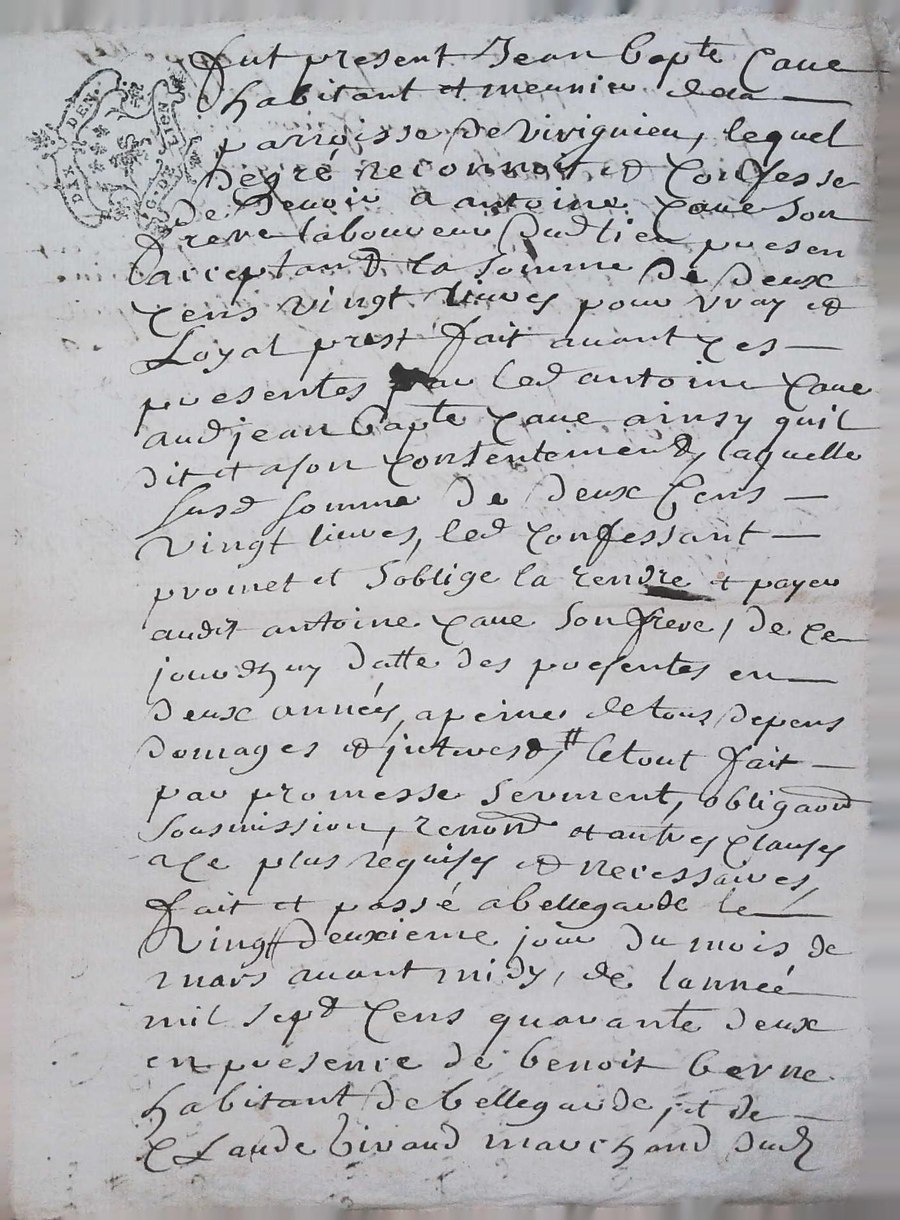 DIX DEN. G. DE LION
fut present Jean Bapte Cave
habitant et meunier de la
parroisse de Virignieu, lequel
de gré reconnoit et confesse
de devoir a antoine Cave son
frere laboureur dud lieu presen
l'acceptand la somme de deux
cens vingt livres pour vray et
Loyal prest fait avant ces
presentes par led antoine Cave
aud jean bapte Cave ainsy quil
dit et a son consentement, laquelle
susd somme de deux cens
vingt livres, led confessant
promet et soblige la rendre et payer
audit antoine Cave son frere, de ce
jourdhuy datte des presentes en
deux années, a peine de tous depens
domages et interest, le tout fait
par promesse serment, obligaond
sousmission, renond et autres clauses
a ce plus réquises et necessaires,
fait et passé a bellegarde le
Vingt deuxieme jour du mois de
mars avant midy, de lannée
mil sept cens quarante deux
en presence de benoit berne
habitant de bellegarde, et de
Claude Giraud marchand dud